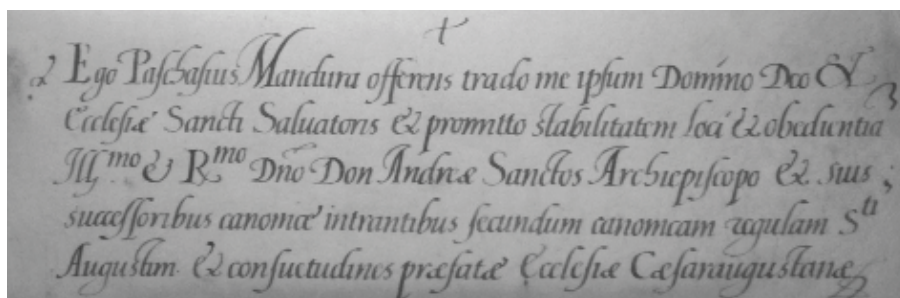 Ego Paschasius Mandura offerens trado me ipsum Domino Deo &
Ecclesiæ Sancti Saluatoris & promitto stabilitatem loci & obedientia
Ill.mo & R.mo Dño Don Andreæ Sanctos Archiepiscopo & suis
successoribus canonicæ intrantibus secundum canonicam regulam S.ti
Augustini & consuetudines præfatæ Ecclesiæ Cæsaraugustanæ